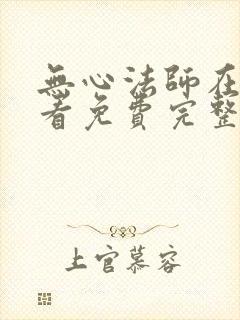 無心法師在
看免費完整
上官慕容